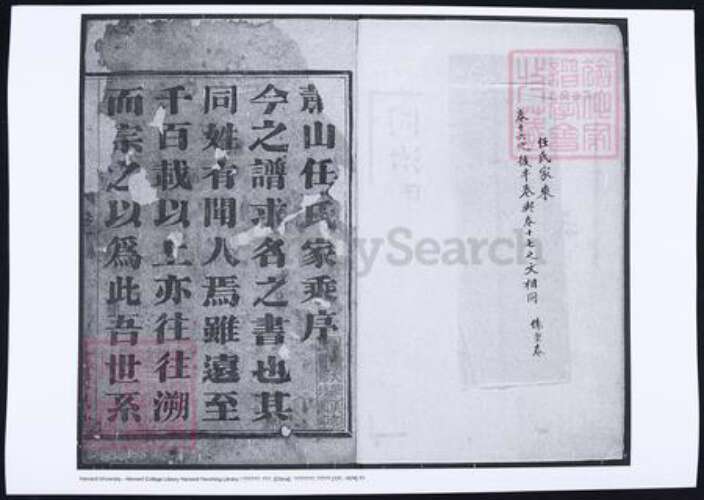 任氏家乘
卷十六之後半卷與卷十七之文相同
蕭山任氏家乘序
今之譜求名之書也其
同姓有聞人焉雖遠至
千百載以上亦往往溯
而宗之以爲此吾世系
Harvard University - Harvard College Library Harvard-Yenching Library